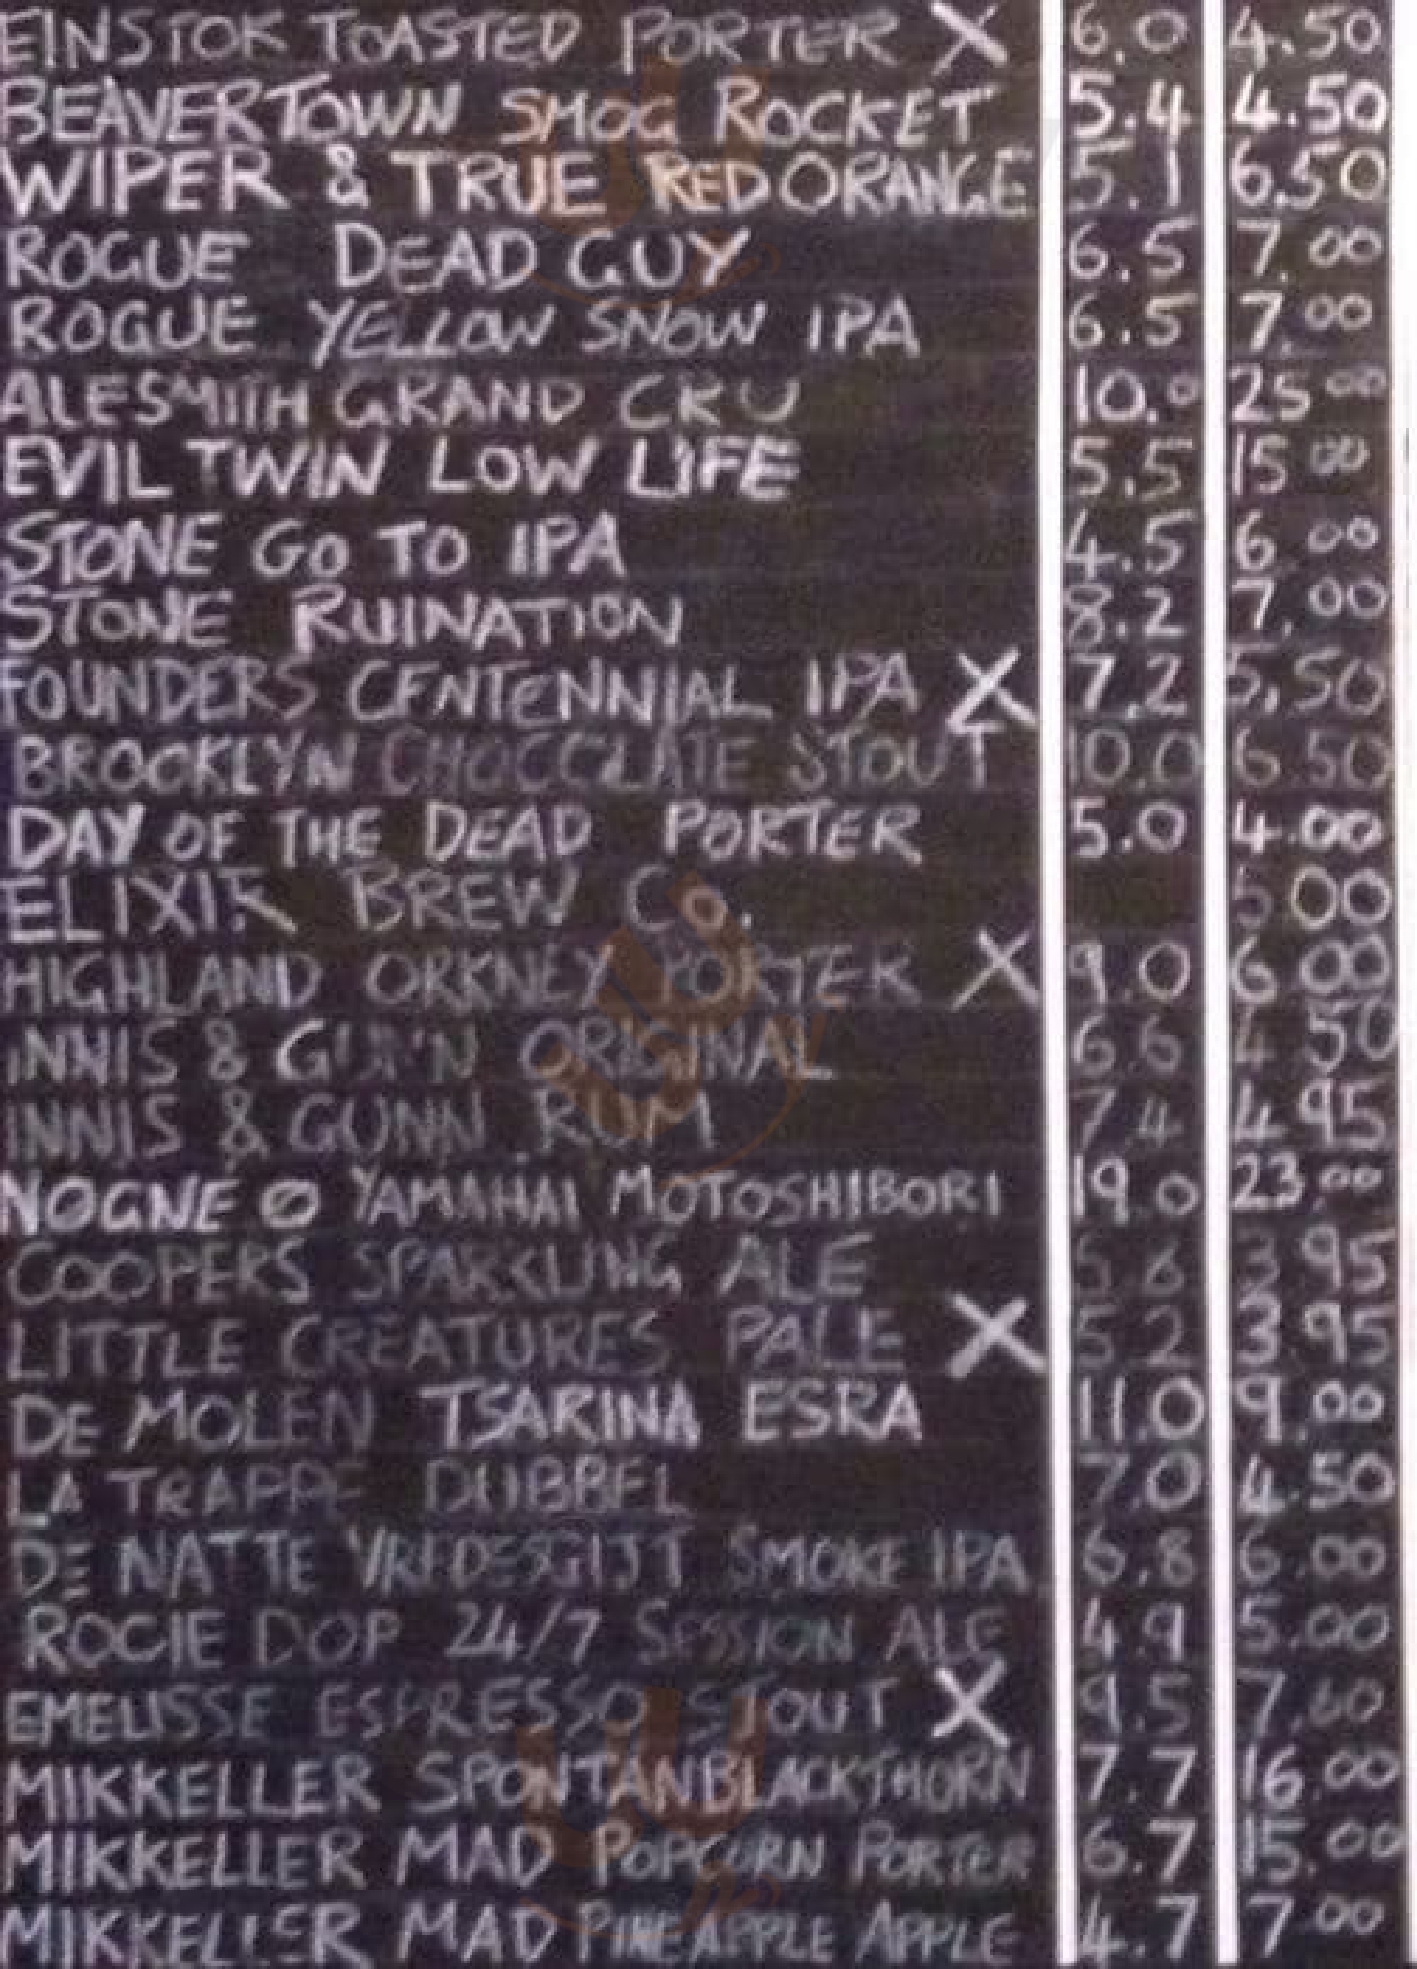 EINSTOK TOASTED PORTER X 6.0 4.50
BEAVERTOWN SMOG ROCKET 5.4 4.50
WIPER & TRUE RED ORANGE 5.1 6.50
ROGUE DEAD GUY 6.5 7.00
ROGUE YELLOW SNOW IPA 6.5 7.00
ALESMITH GRAND CRU 10.0 25 00
EVIL TWIN LOW LIFE 5.5 15 00
STONE GO TO IPA 4.5 6 00
STONE RUINATION 8.2 7.00
FOUNDERS CENTENNIAL IPA X 7.2 5.50
BROOKLYN CHOCOLATE STOUT 10.0 6.50
DAY OF THE DEAD PORTER 5.0 4.00
ELIXIR BREW Co. 5 00
HIGHLAND ORKNEY PORTER X 9.0 6 00
INNIS & GUNN ORIGINAL 6.6 4 50
INNIS & GUNN RUM 7.4 4 95
NOGNE Ø YAMAHAI MOTOSHIBORI 19.0 23.00
COOPERS SPARKLING ALE 5.8 3 95
LITTLE CREATURES PALE X 5.2 3 95
DE MOLEN TSARINA ESRA 11.0 9.00
LA TRAPPE DUBBEL 7.0 4.50
DE NATTE SMOKE IPA 6.8 6.00
ROCIE DOP 24/7 SESSION ALE 4.9 5.00
EMELISSE ESPRESSO STOUT X 9.5 7.00
MIKKELLER SPONTANBLACKTHORN 7.7 16.00
MIKKELLER MAD POPCORN PORTER 6.7 15.00
MIKKELLER MAD PINEAPPLE APPLE 4.7 7.00